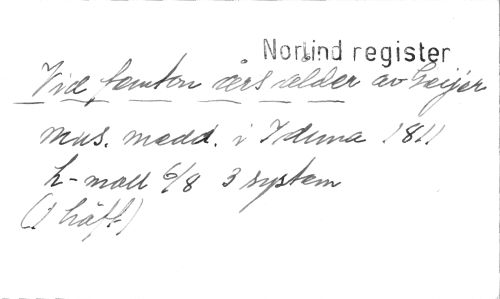 Norlind register
Vid femton års ålder av Geijer
mus. medd. i Iduna 1811
h-moll 6/8 3 system
(1 häft)